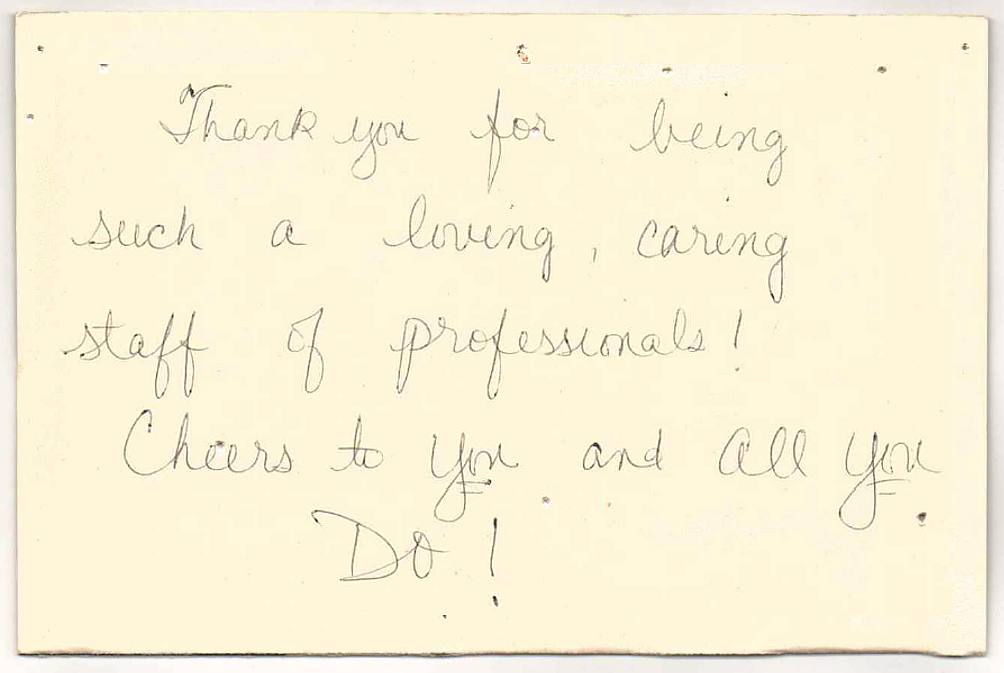 Thank you for being
such a loving, caring
staff of professionals!
Cheers to you and all you
Do!